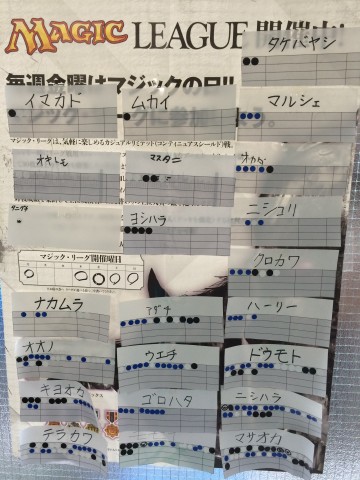 MAGIC LEAGUE 開催中!
毎週金曜はマジックの日!!
タケバヤシ
イマカド
ムカイ
マルシェ
マジック・リーグは、気軽に楽しめるカジュアルリミテッド(コンティニュアスシールド)戦。
オキトモ
マスタニ
オカダ
タニグチ
ヨシハラ
ニシコリ
マジック・リーグ開催曜日
クロカワ
ナカムラ
アダチ
ハーリー
オオノ
ウエチ
ドウモト
キヨオカ
ゴロハタ
ニシハラ
テラカワ
マサオカ